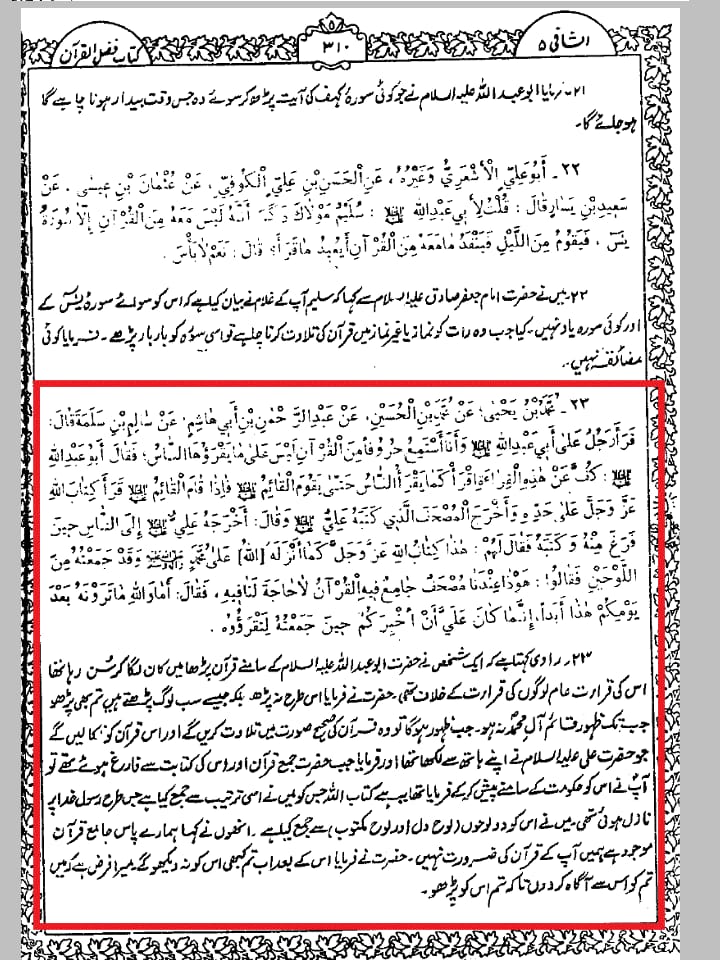 الشافی ۵
۳۱۰
کتاب فضل القرآن
۲۱۔ فرمایا ابوعبد اللہ علیہ السلام نے جو کوئی سورۂ کہف کی آیت پڑھ کر سوئے وہ جس وقت بیدار ہونا چاہے گا
ہو جائے گا۔
۲۲ ـ أَبُوعَلِيٍّ الْأَشْعَرِيُّ وَغَيْرُهُ، عَنِ الْحَسَنِ بْنِ عَلِيٍّ الْكُوفِيِّ، عَنْ عُثْمَانَ بْنِ عِيسَى، عَنْ
سَعِيدِ بْنِ يَسَارٍ قَالَ: قُلْتُ لِأَبِي عَبْدِ اللهِ: سُلَيْمٌ مَوْلَاكَ ذَكَرَ أَنَّهُ لَيْسَ مَعَهُ مِنَ الْقُرْآنِ إِلَّا سُورَةُ
يٰسۤ، فَيَقُومُ مِنَ اللَّيْلِ فَيَنْفَدُ مَا مَعَهُ مِنَ الْقُرْآنِ أَيُعِيدُ مَا قَرَأَ؟ قَالَ: نَعَمْ لَا بَأْسَ.
۲۲۔ میں نے حضرت امام جعفر صادق علیہ السلام سے کہا کہ سلیم آپ کے غلام نے بیان کیا ہے کہ اس کو سوائے سورۂ یٰسٓ کے
اور کوئی سورہ یاد نہیں۔ کیا جب وہ رات کو نماز یا غیر نماز میں قرآن کی تلاوت کرنا چاہے تو اسی سورہ کو بار بار پڑھے۔ فرمایا کوئی
مضائقہ نہیں۔
۲۳ ـ مُحَمَّدُ بْنُ يَحْيَى، عَنْ مُحَمَّدِ بْنِ الْحُسَيْنِ، عَنْ عَبْدِ الرَّحْمٰنِ بْنِ أَبِي هَاشِمٍ، عَنْ سَالِمِ بْنِ سَلَمَةَ قَالَ:
قَرَأَ رَجُلٌ عَلَى أَبِي عَبْدِ اللهِ وَأَنَا أَسْتَمِعُ حُرُوفاً مِنَ الْقُرْآنِ لَيْسَ عَلَى مَا يَقْرَؤُهَا النَّاسُ، فَقَالَ أَبُو عَبْدِ اللهِ
: كُفَّ عَنْ هٰذِهِ الْقِرَاءَةِ اقْرَأْ كَمَا يَقْرَأُ النَّاسُ حَتَّى يَقُومَ الْقَائِمُ فَإِذَا قَامَ الْقَائِمُ قَرَأَ كِتَابَ اللهِ
عَزَّ وَجَلَّ عَلَى حَدِّهِ وَأَخْرَجَ الْمُصْحَفَ الَّذِي كَتَبَهُ عَلِيٌّ وَقَالَ: أَخْرَجَهُ عَلِيٌّ إِلَى النَّاسِ حِينَ
فَرَغَ مِنْهُ وَكَتَبَهُ فَقَالَ لَهُمْ: هٰذَا كِتَابُ اللهِ عَزَّ وَجَلَّ كَمَا أَنْزَلَهُ [اللهُ] عَلَى مُحَمَّدٍ وَقَدْ جَمَعْتُهُ مِنَ
اللَّوْحَيْنِ فَقَالُوا: هُوَ ذَا عِنْدَنَا مُصْحَفٌ جَامِعٌ فِيهِ الْقُرْآنُ لَا حَاجَةَ لَنَا فِيهِ، فَقَالَ: أَمَا وَاللهِ مَا تَرَوْنَهُ بَعْدَ
يَوْمِكُمْ هٰذَا أَبَداً، إِنَّمَا كَانَ عَلَيَّ أَنْ أُخْبِرَكُمْ حِينَ جَمَعْتُهُ لِتَقْرَؤُوهُ.
۲۳۔ راوی کہتا ہے کہ ایک شخص نے حضرت ابوعبد اللہ علیہ السلام کے سامنے قرآن پڑھا میں کان لگا کر سُن رہا تھا
اس کی قرارت عام لوگوں کی قرارت کے خلاف تھی۔ حضرت نے فرمایا اس طرح نہ پڑھو بلکہ جیسے سب لوگ پڑھتے ہیں تم بھی پڑھو
جب تک ظہور قائم آلِ محمدؐ نہ ہو۔ جب ظہور ہوگا تو وہ قرآن کی صحیح صورت میں تلاوت کریں گے اور اس قرآن کو نکالیں گے
جو حضرت علی علیہ السلام نے اپنے ہاتھ سے لکھا تھا اور فرمایا جب حضرت جمع قرآن اور اس کی کتابت سے فارغ ہوئے تھے تو
آپ نے اس کو حکومت کے سامنے پیش کر کے فرمایا تھا یہ ہے کتاب اللہ جس کو میں نے اسی ترتیب سے جمع کیا ہے جس طرح رسول خدا پر
نازل ہوئی تھی میں نے اس کو دو لوحوں (لوح دل اور لوح مکتوب) سے جمع کیا ہے۔ انھوں نے کہا ہمارے پاس جامع قرآن
موجود ہے ہمیں آپ کے قرآن کی ضرورت نہیں۔ حضرت نے فرمایا اس کے بعد اب تم کبھی اس کو نہ دیکھو گے میرا فرض ہے کہ میں
تم کو اس سے آگاہ کر دوں تاکہ تم اس کو پڑھو۔